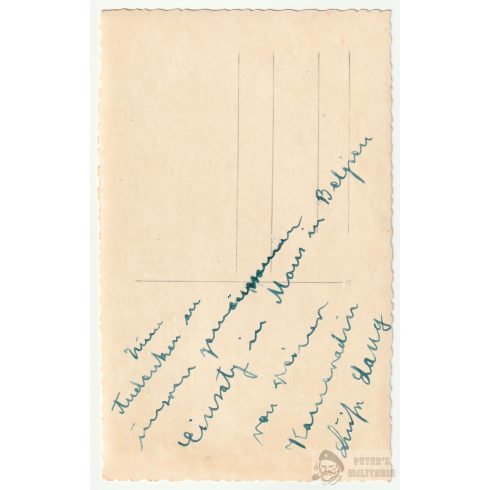 Zum
Andenken an
unseren gemeinsamen
Einsatz in Mons in Belgien
von Deiner
Kameradin
Lang
PETER'S
MILITARIA